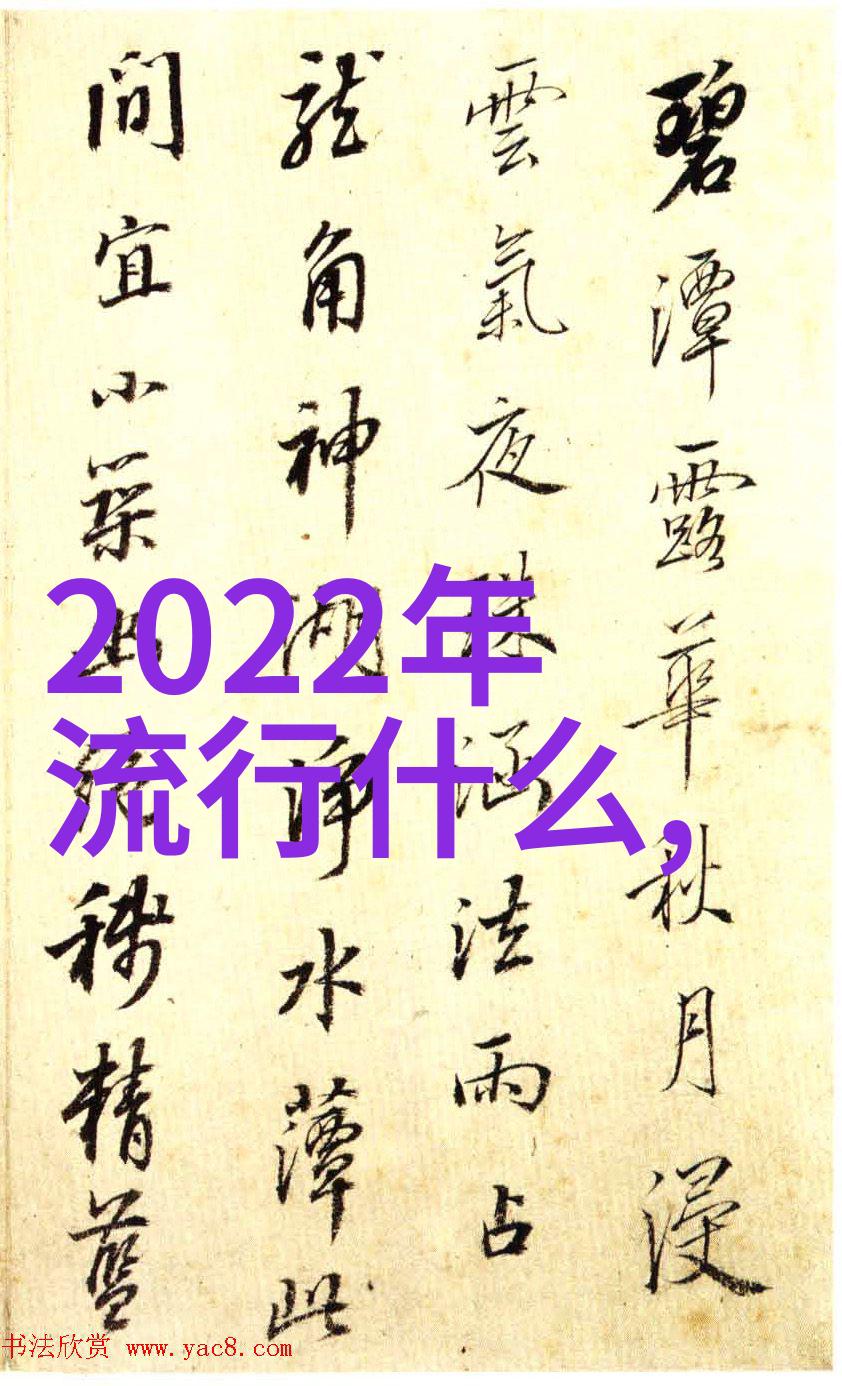 碧潭露華秋月浸
雲氣夜珠涵法雨占
龍角神湖淨水薴此
間宜小築幽絕稱精藍
2022年
流行什么,
书法欣赏 www.yac8.com